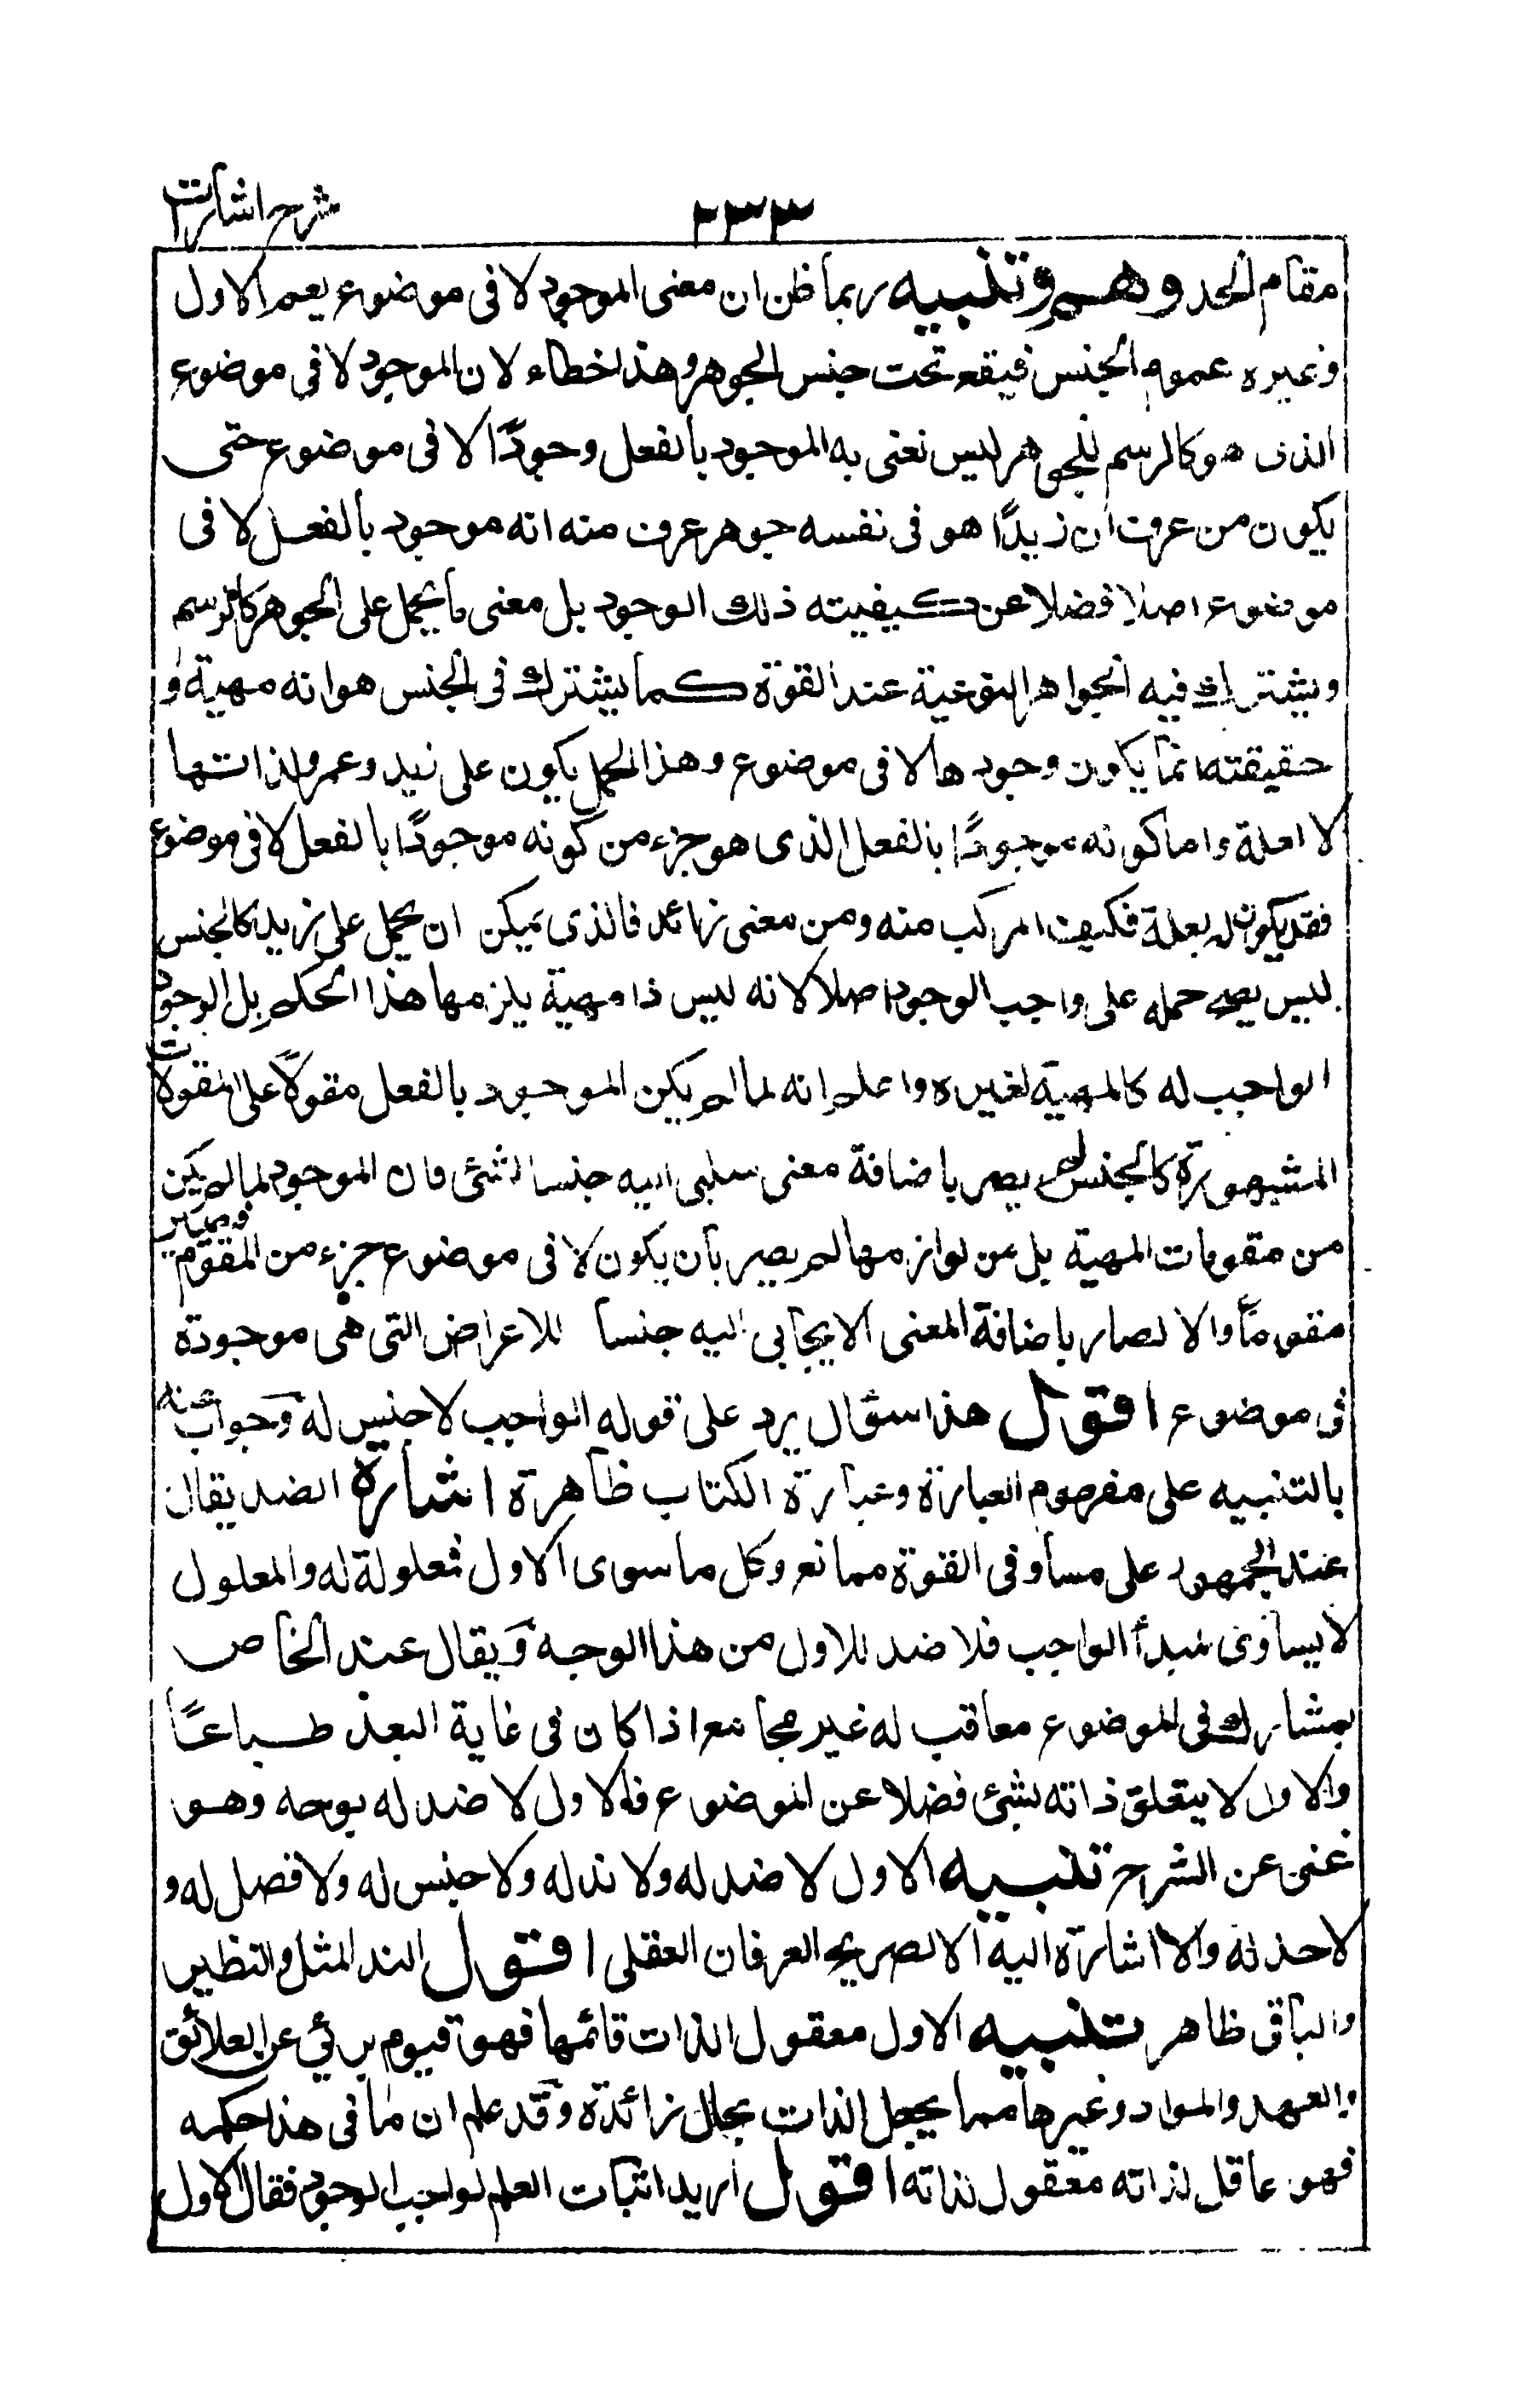 شرح اشارات
٢٣٣
مقام الحد وهم وتنبيه ربما ظن ان معنى الموجود لا فى موضوع يعم الاول
وغيره عموم الجنس فيقع تحت جنس الجوهر وهذا خطاء لان الموجود لا فى موضوع
الذى هو كالرسم للجوهر ليس نعنى به الموجود بالفعل وجودًا لا فى موضوع حتى
يكون من عرف ان زيدًا هو فى نفسه جوهر عرف منه انه موجود بالفعل لا فى
موضوع اصلا فضلا عن كيفيته ذلك الوجود بل معنى ما يحمل على الجوهر كالرسم
ويشترك فيه الجواهر النوعية عند القوة كما يشترك فى الجنس هو انه مهية و
حقيقته انما يكون وجودها لا فى موضوع وهذا الحمل يكون على زيد وعمر ولذاتهما
لا لعلة واما كونه موجودًا بالفعل الذى هو جزء من كونه موجودًا بالفعل لا فى موضوع
فقد يكون له بعلة فكيف المركب منه ومن معنى زائد فالذى يمكن ان يحمل على زيد كالجنس
ليس يصح حمله على واجب الوجود اصلا لانه ليس ذا مهية يلزمها هذا الحكم بل الوجود
الواجب له كالمهية لغيره واعلم انه لما لم يكن الموجود بالفعل مقولاً على المقولات
المشهورة كالجنس لم يصر باضافة معنى سلبى اليه جنسا لشئ فان الموجود لما لم يكن
من مقومات المهية بل من لوازمها لم يصر بان يكون لا فى موضوع جزء من المقوم فيصير
مقومًا والا لصار باضافة المعنى الايجابى اليه جنسا للاعراض التى هى موجودة
فى موضوع اقول هذا سؤال يرد على قوله الواجب لا جنس له وجوابه
بالتنبيه على مفهوم العبارة وعبارة الكتاب ظاهرة اشارة الضد يقال
عند الجمهور على مساو فى القوة ممانع وكل ما سوى الاول فمعلولة له والمعلول
لا يساوى مبدأ الواجب فلا ضد للاول من هذا الوجه ويقال عند الخاص
لمشارك فى الموضوع معاقب له غير مجامع اذا كان فى غاية البعد طباعًا
والاول لا يتعلق ذاته بشئ فضلا عن الموضوع فالاول لا ضد له بوجه وهو
غنى عن الشرح تنبيه الاول لا ضد له ولا ند له ولا جنس له ولا فصل له و
لا حد له ولا اشارة اليه الا لصريح العرفان العقلى اقول الند المثل والنظير
والباقى ظاهر تنبيه الاول معقول الذات قائمها فهو قيوم برئي عن العلائق
والعهد والمواد وغيرها مما يجعل الذات بحال زائدة وقد علم ان ما فى هذا حكمه
فهو عاقل لذاته معقول لذاته اقول اريد اثبات العلم لواجب الوجود فقال الاول